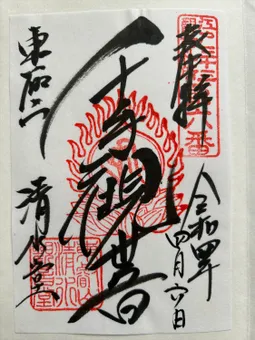 奉拝
令和四年
四月六日
千手観世音
東叡山
清水堂